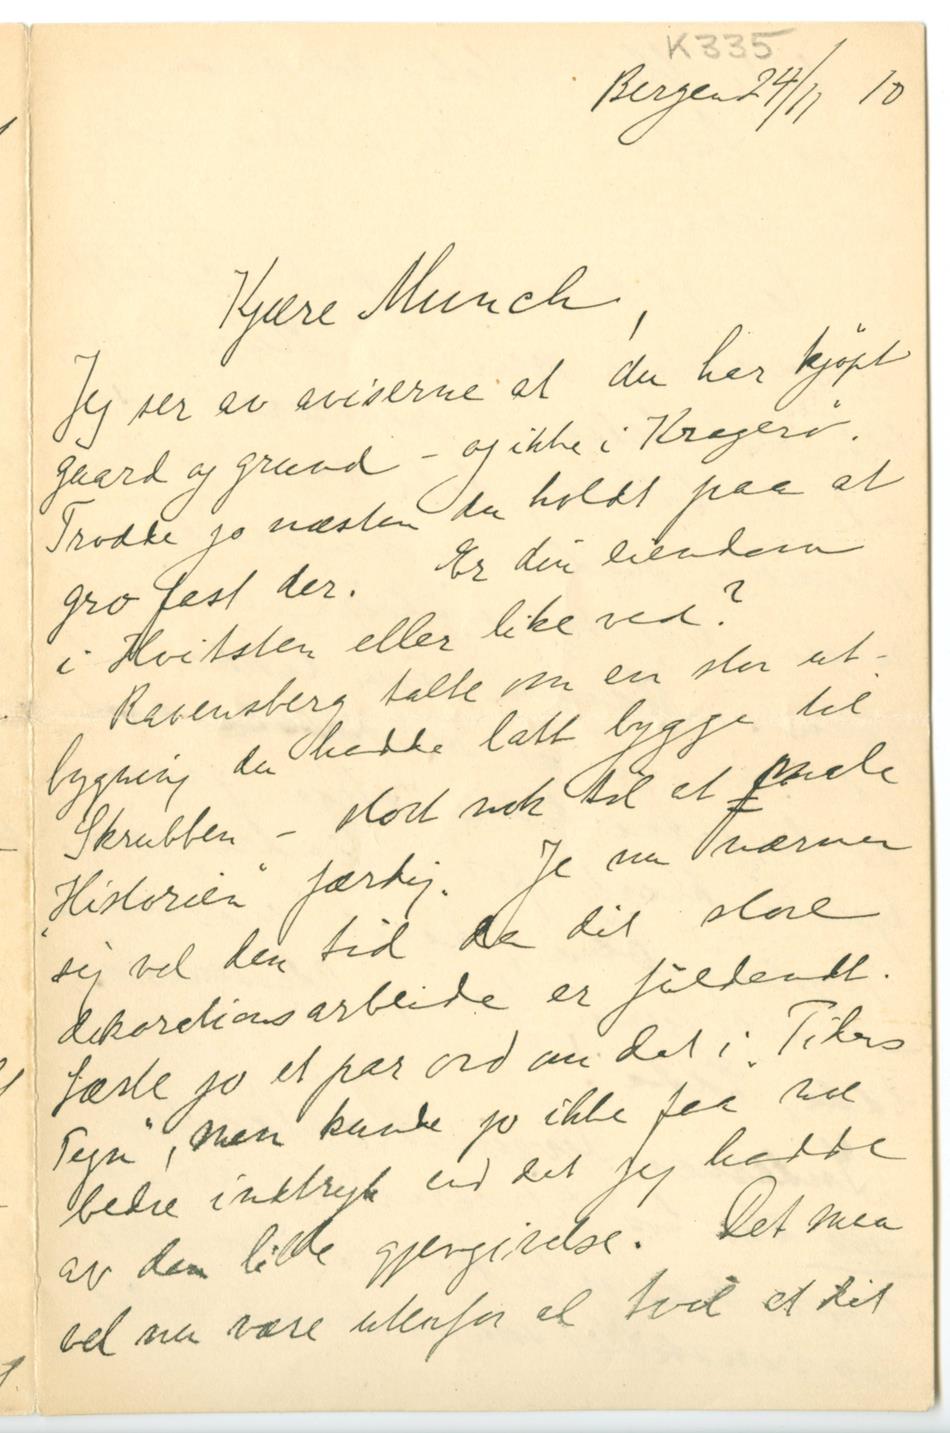 K335
Bergen 24/11 10
Kjære Munch,
Jeg ser av aviserne at du har kjøpt
gaard og grund – og ikke i Kragerø.
Trodde jo næsten du holdt paa at
gro fast der. Er din eiendom
i Hvitsten eller like ved?
Ravensberg talte om en stor ut-
bygning du hadde latt bygge til
Skrubben – stort nok til at male
"Historien" færdig. Je nu nærmer
sig vel den tid da dit store
dekorationsarbeide er fuldendt.
Læste jo et par ord om det i "Tidens
Tegn", men kunde jo ikke faa noe
bedre indtryk end det jeg hadde
av den lille gjengivelse. Det maa
vel nu være utenfor al tvil at dit